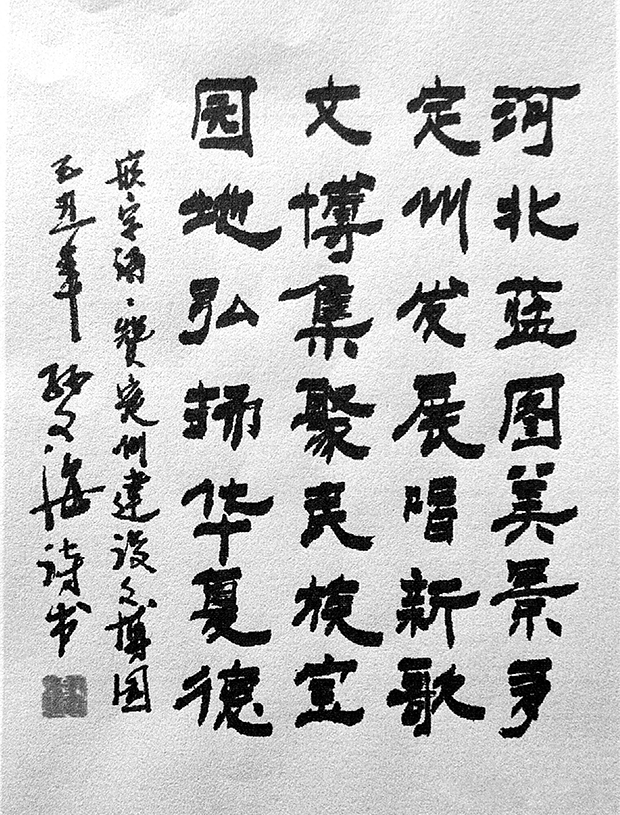 河北蓝图美景多
定州发展唱新歌
文博集聚民族宝
园地弘扬华夏德
嵌字赞定州建设文博园
己丑年 文海诗书